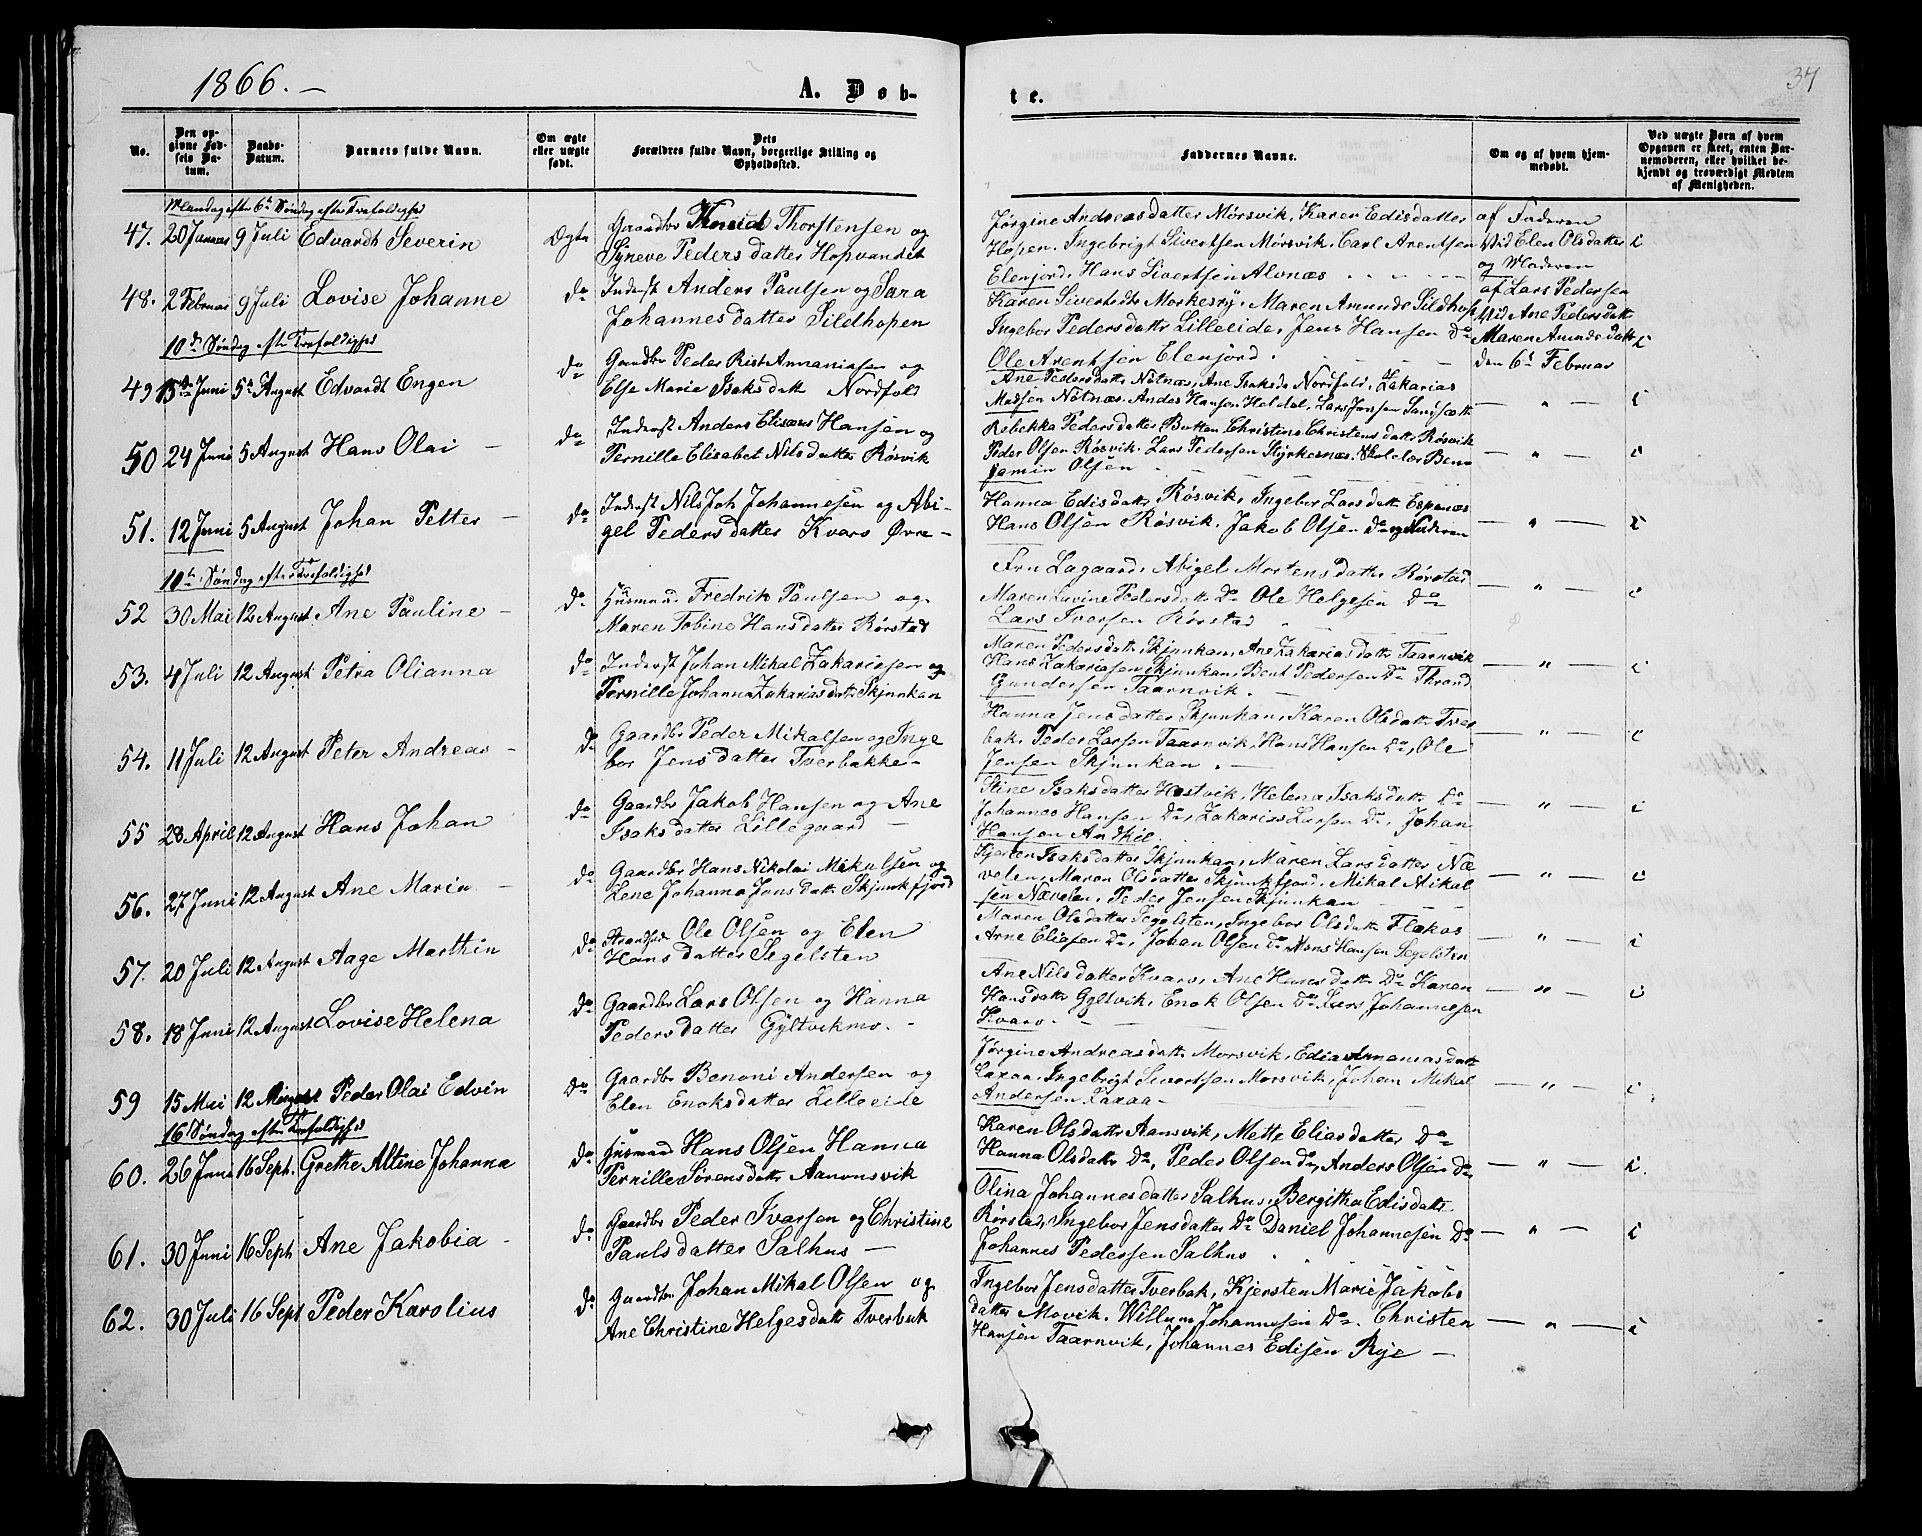 1866. —
A. Døb-
te.
37
No.
Den op-
givne Fød-
sels Da-
tum.
Daabs-
Datum.
Barnets fulde Navn.
Om ægte
eller uægte
født.
Dets
Forældres fulde Navn, borgerlige Stilling og
Opholdssted.
Faddernes Navne.
Om og af hvem hjem-
medøbt.
Ved uægte Børn af hvem
Opgaven er skeet, enten Bar-
nemoderen, eller hvilket be-
kjendt og troværdigt Medlem
af Menigheden.
Mandag efter 6te Søndag efter Trefoldighed
47. 20 Januar 9 Juli Edvardt Severin Ægte Gaardbr Thorstensen og
Syneve Pedersdatter Hopvandet
Jørgine Andreasdatter Mørsvik, Karen Edisdatter
Hopen. Ingebrigt Sivertsen Mørsvik, Carl Arentsen
Elenjord, Hans Sivertsen Alvnæs
af Faderen
Vid Elen Olsdatter
og Moderen
48. 2 Februar 9 Juli Lovise Johanne do Inderst Anders Paulsen og Sara
Johannesdatter Sildhopen
Karen Maren Amunds Sildhop
Ingebor Pedersdatter Lilleeide, Jens Hansen Do
Ole Arentsen Elenjord.
af Lars Pedersen
Vid Ane Pedersdatt
Maren Amundsdatt
den 6te Februar
10de Søndag efter Trefoldighed
49 13de Juni 5te August Edvardt Engen do Gaardbr Peder Rist Annaniasen og
Else Marie Isaksdatt Nordfold
Ane Pedersdatt Nötnæs, Ane Isaksd. Nordfold, Zakarias
Madsen Nötnæs. Anders Hansen Heldal, Lars Jensen
50 24 Juni 5 August Hans Olai — do Inderst Anders Elisæus Hansen og
Pernille Elisabet Nilsdatter Røsvik
Rebekka Pedersdatter Botten Christine Christensdatt Røsvik
Peder Olsen Røsvik. Lars Pedersen Styrkesnæs. Ben-
jamin Olsen
51. 12 Juni 5 August Johan Petter — do Inderst Nils Joh Johannesen og Abi-
gel Pedersdatter Kvarv Øvre —
Hanna Edisdatt Røsvik, Ingebor Larsdatt Espenæs
Hans Olsen Røsvik, Jakob Olsen Do og Faderen
10te Søndag efter Trefoldighed
52 30 Mai 12 August Ane Pauline — do Husmand Fredrik Paulsen og
Maren Tobine Hansdatter Rørstad
Fru Lagaard, Abigel Mortensdatter Rørstad
Maren Lovine Pedersdatt Do Ole Helgesen Do
Lars Iversen Rørstad
53. 4 Juli 12 August Petra Olianna do Inderst Johan Mikal Zakariasen og
Pernille Johanna Zakariasdatt Skjunkan
Maren Pedersdatt Skjunkan, Ane Zakariasdatt Taarnvik
Hans Zakariasen Skjunkan, Bent Pedersen Do Thrond
Gundersen Taarnvik. —
54. 11 Juli 12 August Peter Andreas — do Gaardbr Peder Mikalsen og Inge
bor Jensdatter Tverbakke —
Hanna Jensdatter Skjunkan, Karen Olsdatt Tver
bak, Peder Larsen Taarnvik, Hans Hansen Do, Ole
Jensen Skjunkan. —
55 28 April 12 August Hans Johan do Gaardbr Jakob Hansen og Ane
Isaksdatter Lillegaard —
Stine Isaksdatter Hestvik, Helena Isaksdatt Do
Johannes Hansen Do, Zakarias Larsen Do, Johan
Hansen Andkil.
56. 27 Juni 12 August Ane Maria — do Gaardbr Hans Nikolai Mikalsen og
Lene Johanna Jensdatt Skjunkfjord
Kjersten Isaksdatter Skjunkan, Maren Larsdatter Næ
velen, Maren Olsdatter Skjunkfjord, Mikal Mikal
sen Nævelen, Peder Jensen Skjunkan
57. 20 Juli 12 August Aage Marthin do Strandsid Ole Olsen og Elen
Hansdatter Segelsten
Maren Olsdatter Segelsten, Ingebor Olsdatt Flækos
Arne Eliasen Do, Johan Olsen Do Mons Hansen Segelsten
58. 18 Juni 12 August Lovise Helena do Gaardbr Lars Olsen og Hanna
Pedersdatter Gyltvikmo. —
Ane Nilsdatter Kvarv, Ane Hansdatt Do Karen
Hansdatt Gyltvik, Enok Olsen Do Lars Johannesen
Kvarv. —
59 15 Mai 12 August Peder Olai Edvin do Gaardbr Benoni Andersen og
Elen Enoksdatter Lilleeide
Jørgine Andreasdatt Morsvik, Edia Ananiasdatt
Laxaa, Ingebrigt Sivertsen Morsvik, Johan Mikal
Andersen Laxaa —
16de Søndag efter Trefoldighed
60. 26 Juni 16 Sept. Grethe Altine Johanna do Husmand Hans Olsen Hanna
Pernille Sørensdatt Aamonsvik
Karen Olsdatter Aansvik, Mette Eliasdatter Do
Hanna Olsdatt Do, Peder Olsen Do, Anders Olsen Do
61. 30 Juni 16 Sept Ane Jakobia — do Gaardbr Peder Ivarsen og Christine
Paulsdatter Salhus —
Olina Johannesdatter Salhus, Bergitha Edisdatt
Rørstad, Ingebor Jensdatter Do Daniel Johannesen Do
Johannes Pedersen Salhus.
62. 30 Juli 16 Sept Peder Karolius do Gaardbr Johan Mikal Olsen og
Ane Christine Helgesdatt Tverbak
Ingebor Jensdatter Tverbak, Kjersten Marie Jakobs
datter Movik. Willum Johannesen Do. Christen
Hansen Taarnvik, Johannes Edisen Røje —